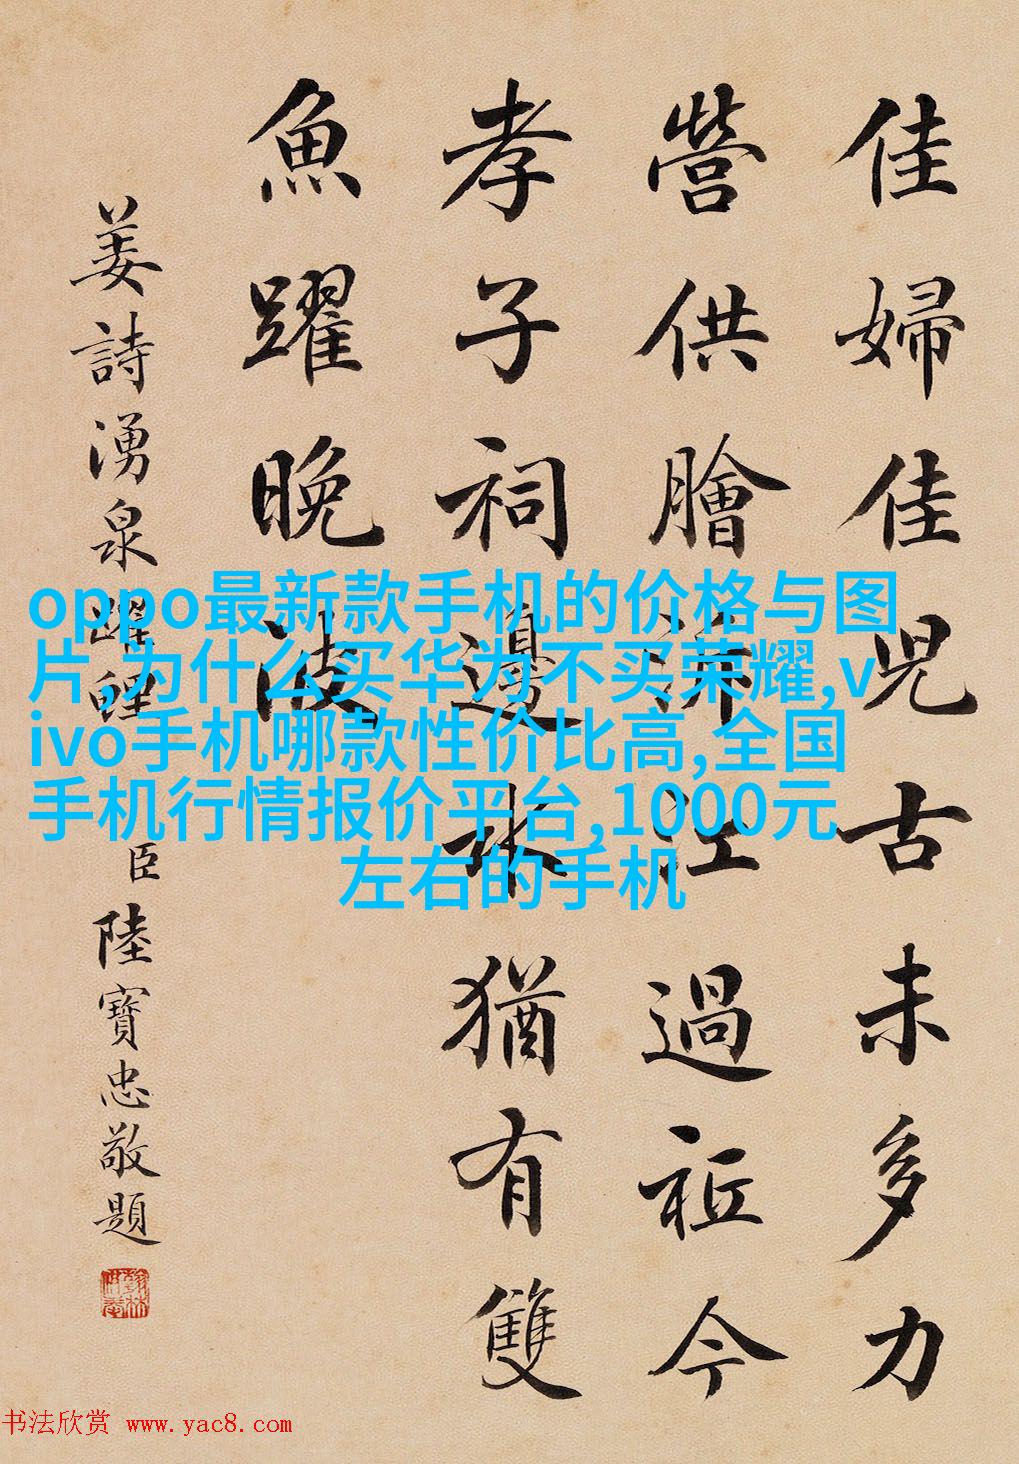 佳婦佳兒古未多力
營供膾泝江過祗今
孝子祠邊水猶有雙
魚躍晚波
姜詩湧泉躍鯉
臣陸寶忠敬題
oppo最新款手机的价格与图
片,为什么买华为不买荣耀,v
ivo手机哪款性价比高,全国
手机行情报价平台,1000元
左右的手机
书法欣赏 www.yac8.com